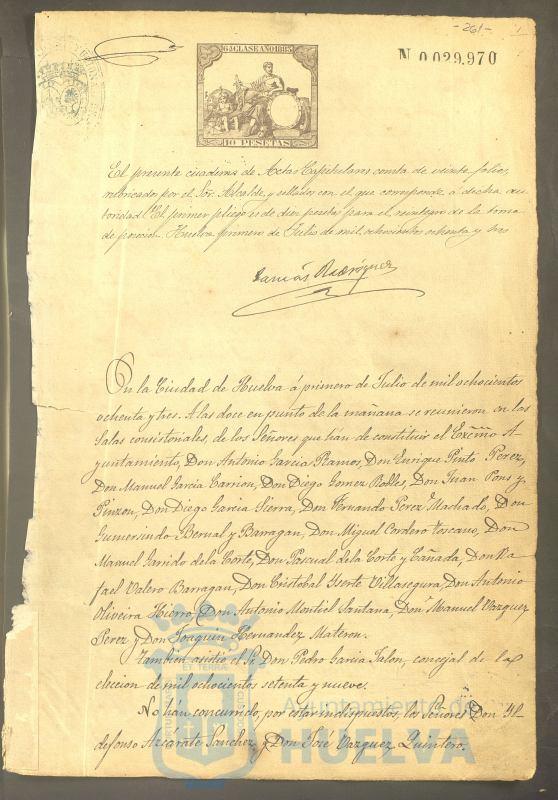 -261-
6ª CLASE AÑO 1883
N 0.029.970
10 PESETAS
El presente cuaderno de Actas Capitulares consta de veinte folios,
rubricados por el Sor. Alcalde y sellados con el que corresponde á dicha au-
toridad. El primer pliego es de diez pesetas para el reintegro de la toma
de posesión. Huelva primero de Julio de mil ochocientos ochenta y tres
Rodriguez
En la Ciudad de Huelva á primero de Julio de mil ochocientos
ochenta y tres. A las doce en punto de la mañana se reunieron en las
Salas consistoriales, de los Señores que hán de constituir el Exmo A-
yuntamiento, Don Antonio Garcia Ramos, Don Enrique Pinto Perez,
Don Manuel Garcia Carrion, Don Diego Gomez Robles, Don Juan Pons y
Pinzon, Don Diego Garcia Sierra, Don Fernando Perez Machado, Don
Gumersindo Bernal y Barragan, Don Miguel Cordero Toscano, Don
Manuel Garrido de la Corte, Don Pascual de la Corte y Cañada, Don Ra-
fael Valero Barragan, Don Cristobal Yserte Villasegura, Don Antonio
Oliveira Hierro, Don Antonio Montiel Santana, Don Manuel Vazquez
Perez y Don Joaquin Hernandez Materon.
Tambien asistió el Sr. Don Pedro Garcia Jalon, concejal de la
eleccion de mil ochocientos setenta y nueve.
No hán concurrido, por estar indispuestos, los Señores Don Yl-
defonso Azcarate Sanchez, y Don José Vazquez Quintero.
Ayuntamiento de
HUELVA